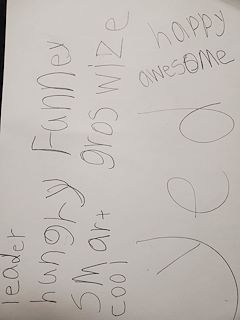 happy
awesome
leader
hungry Funney
Smart gros wize
cool